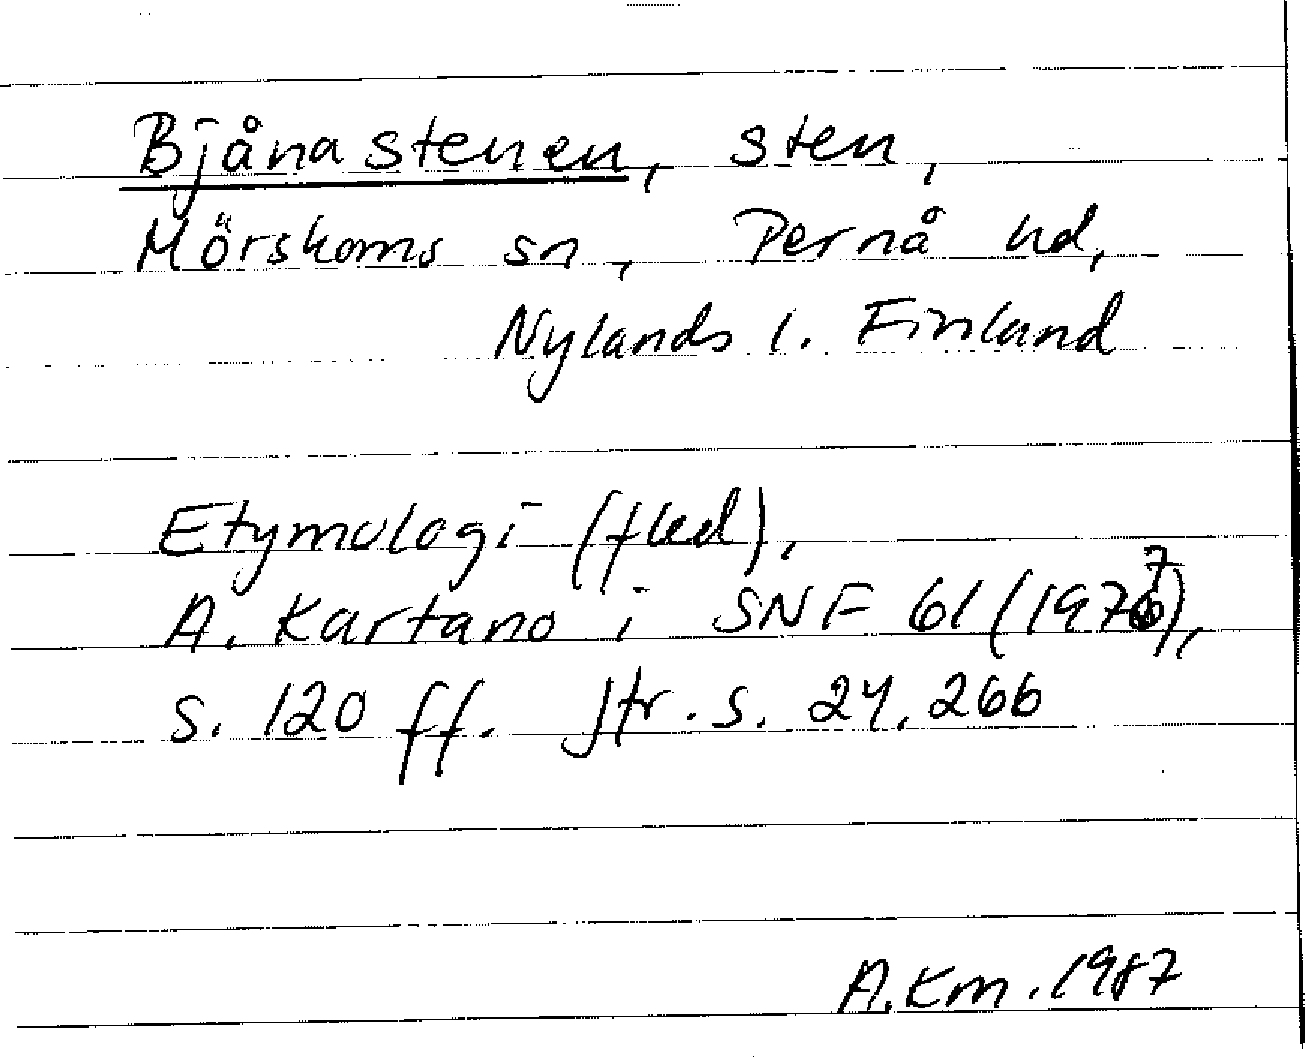 Bjånastenen, sten,
Mörskoms sn, Pernå hd,
Nylands l. Finland
Etymologi (fled),
A. Kartano i SNF 61 (1977),
s. 120 ff. Jfr. s. 24, 266
A.Km. 1987